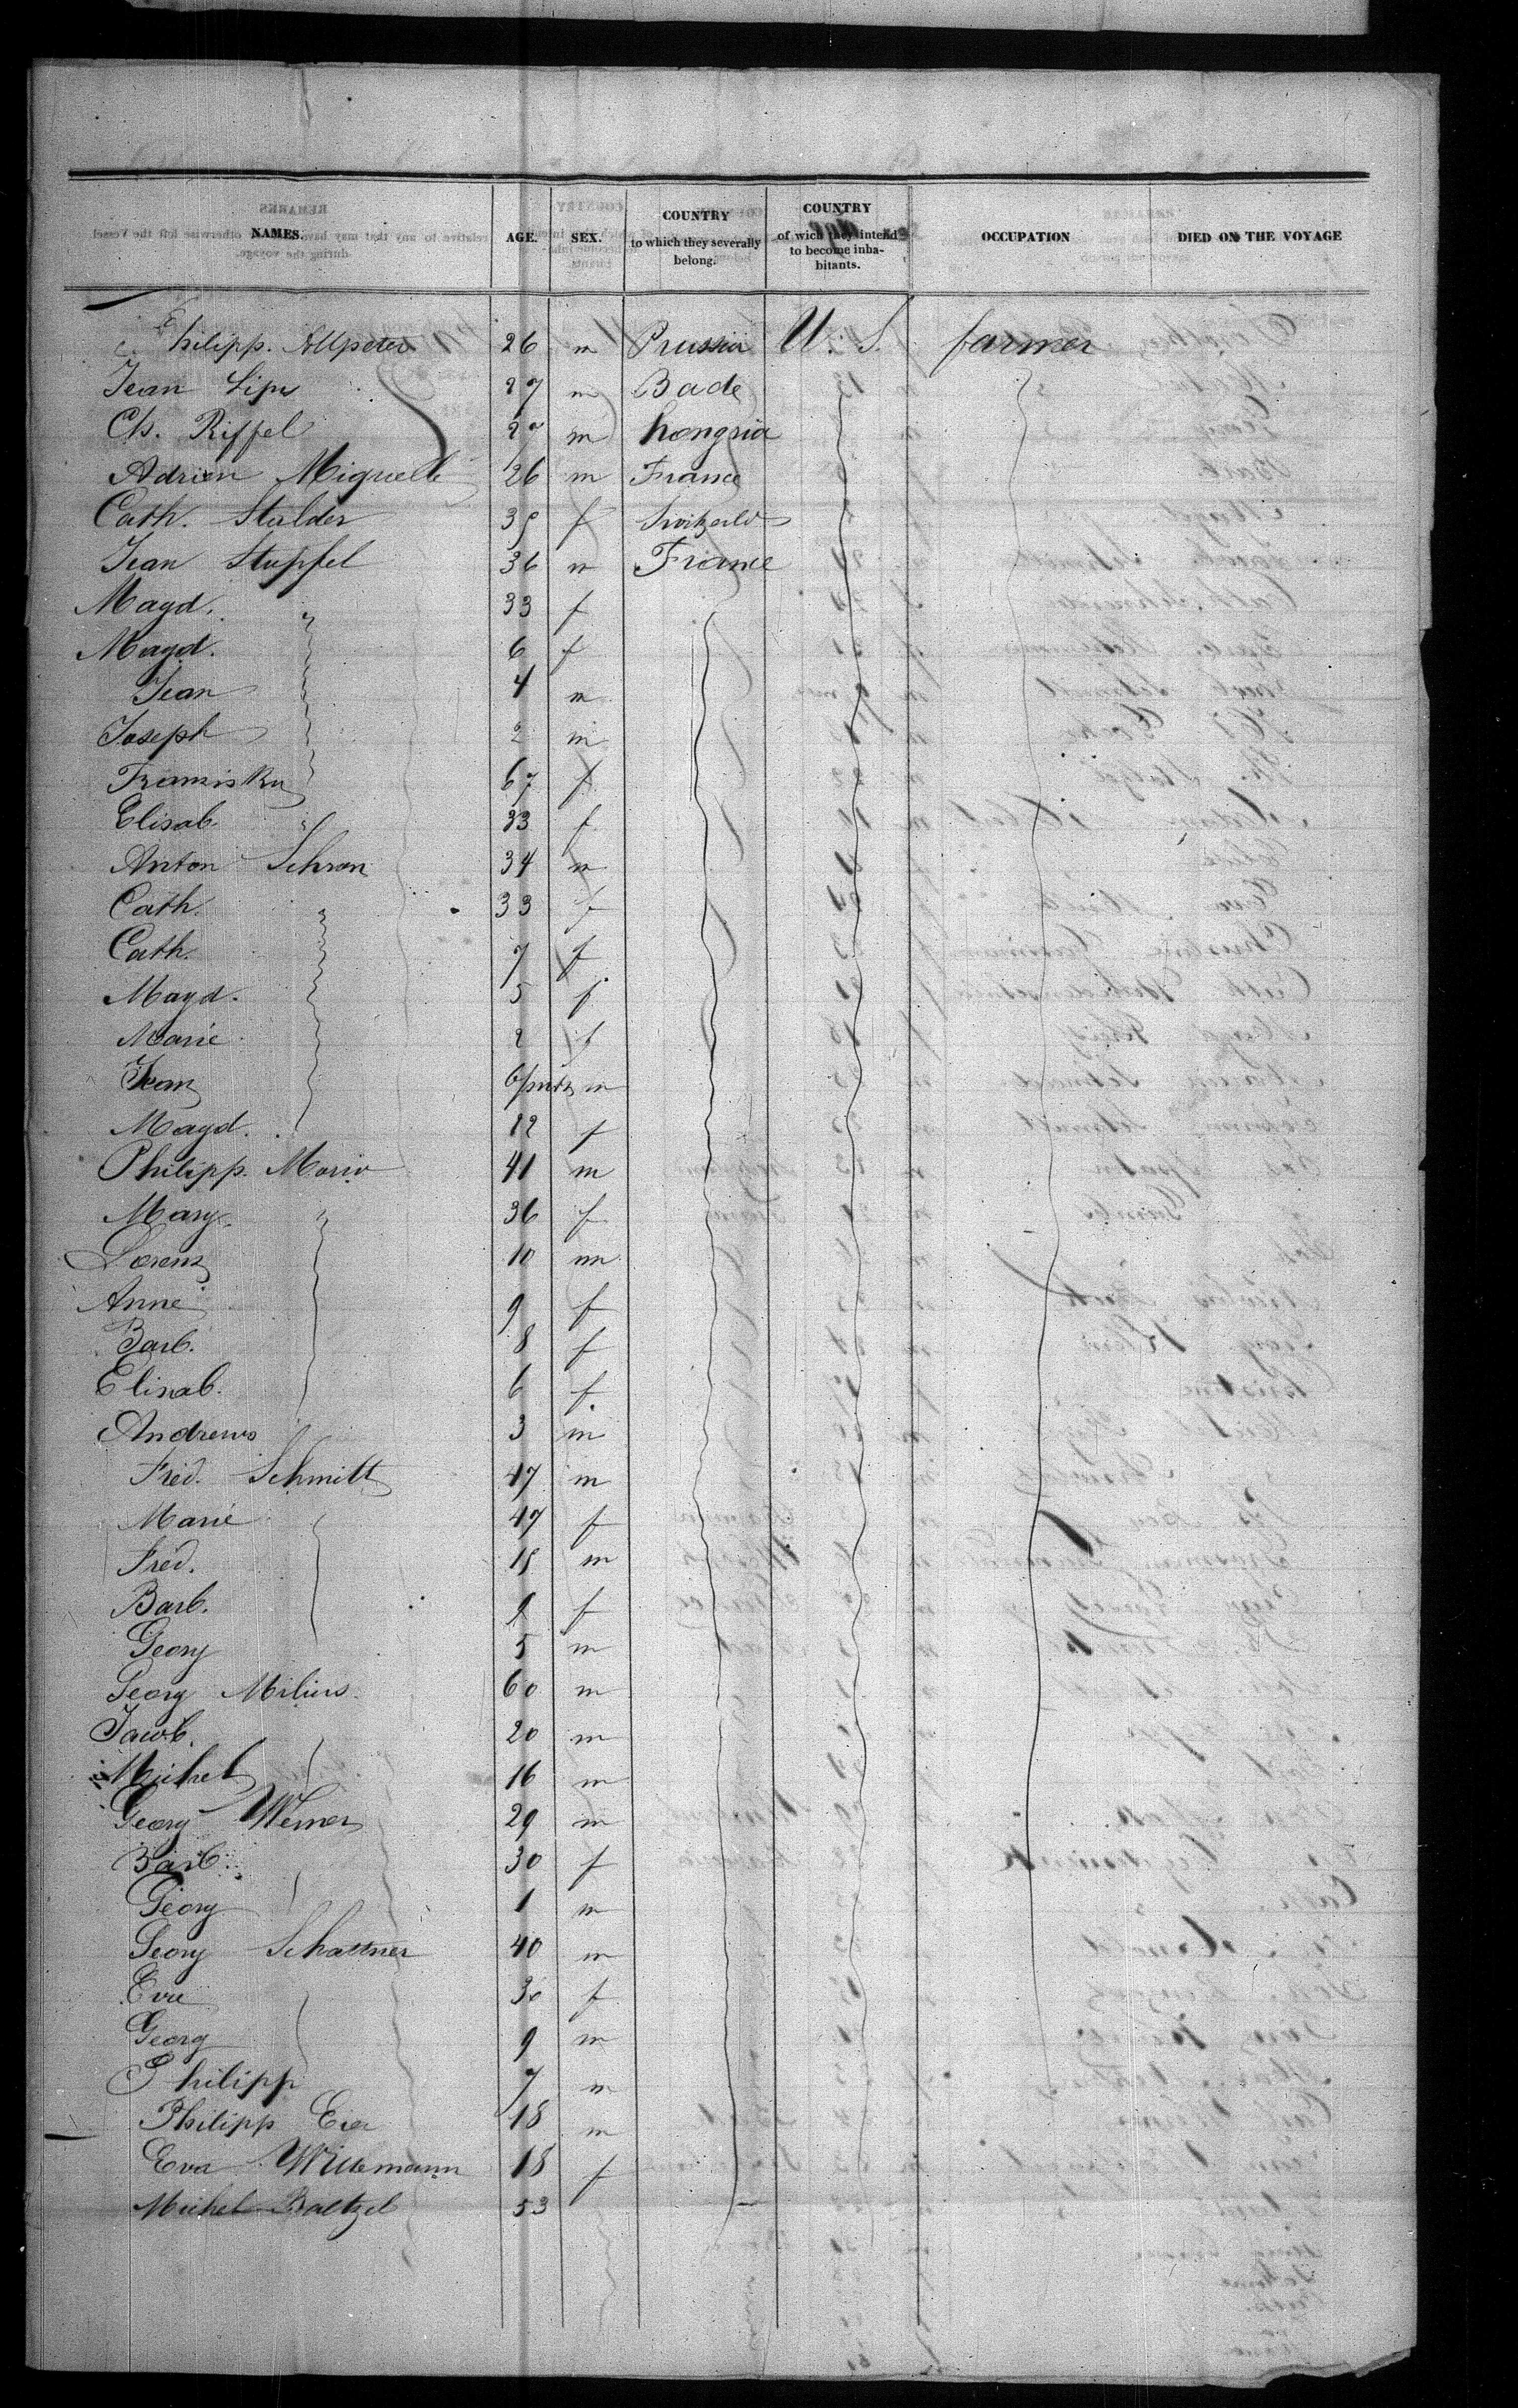 NAMES. AGE. SEX. COUNTRY to which they severally belong. COUNTRY of wich they intend to become inhabitants. OCCUPATION DIED ON THE VOYAGE
Philipp. Allpeter 26 m Prussia U. S. farmer
Jean Lips 27 m Bade
Ch. Riffel 27 m hongria
Adrien Miquelle 26 m France
Cath. Stalder 35 f Switzerld
Jean Stupfel 36 m France
Magd. " 33 f
Magd. 6 f
Jean 4 m
Joseph 2 m
Franziska 67 f
Elisab. " 33 f
Anton Schron 34 m
Cath. " 33 f
Cath. 7 f
Magd. 5 f
Marie 2 f
Jean 6 mts m
Magd. 12 f
Philipp. 41 m
Mary. " 36 f
Lorenz 10 m
Anne 9 f
Barb. 8 f
Elisab. 6 f
Andrews 3 m
Fred. Schmitt 47 m
Marie 47 f
Fred. 15 m
Barb. 9 f
Georg 5 m
Georg Milius 60 m
Jacob. 20 m
Michel 16 m
Georg Werner 29 m
Barb. 30 f
Georg 1 m
Georg Schattner 40 m
Eve 30 f
Georg 9 m
Philipp 7 m
Philipp 18 m
Eva Wittemann 18 f
Michel Baltzel 53